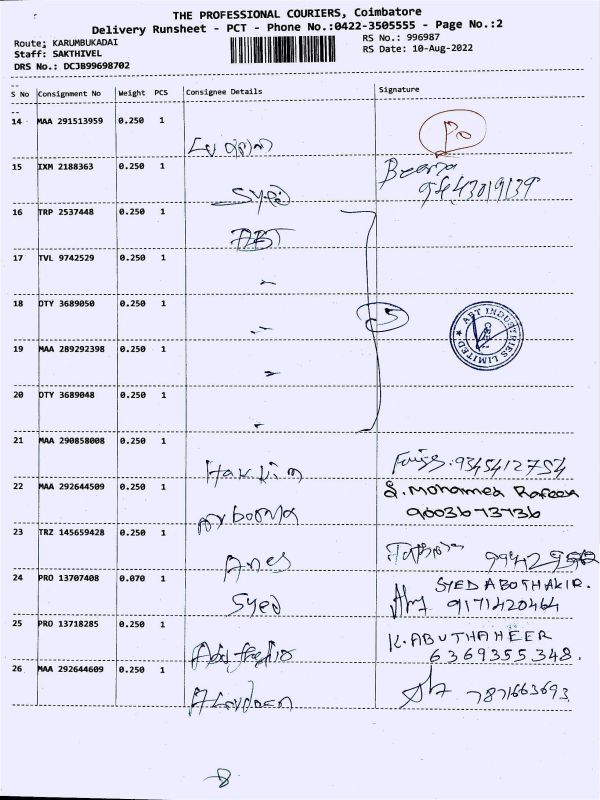 THE PROFESSIONAL COURIERS, Coimbatore
Delivery Runsheet - PCT - Phone No.:0422-3505555 - Page No.:2
Route: KARUMBUKADAI
RS No.: 996987
Staff: SAKTHIVEL
RS Date: 10-Aug-2022
DRS No.: DCJB99698702
S No Consignment No Weight PCS Consignee Details Signature
14 MAA 291513959 0.250 1
15 IXM 2188363 0.250 1
9443019139
Syed
16 TRP 2537448 0.250 1
ABT
17 TVL 9742529 0.250 1
18 DTY 3689050 0.250 1
5
ABT INDUSTRIES LIMITED
19 MAA 289292398 0.250 1
20 DTY 3689048 0.250 1
21 MAA 290858008 0.250 1
Hakkim 9345412754
22 MAA 292644509 0.250 1
S. Mohamed Rafeek
9003673736
23 TRZ 145659428 0.250 1
Anes
24 PRO 13707408 0.070 1
SYED ABOTHAKIR.
Syed 9171420464
25 PRO 13718285 0.250 1
K. ABUTHAHEER
6369355348.
26 MAA 292644609 0.250 1
7871663693
8